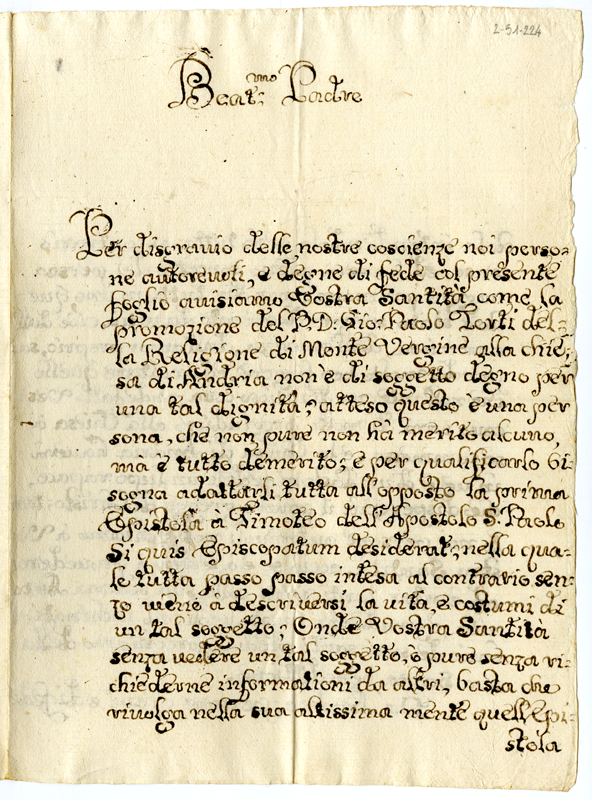 2-51-224
Beat.mo Padre
Per disgravio delle nostre coscienze noi perso=
ne autorevoli, e degne di fede col presente
foglio avisiamo Vostra Santità, come la
promozione del P. D. Gio: Paolo Torti del=
la Religione di Monte Vergine alla chie=
sa di Andria non è di soggetto degno per
una tal dignità; atteso questo è una per
sona, che non pure non hà merito alcuno,
mà è tutto demerito; e per qualificarlo bi=
sogna adattarli tutta all'opposto la prima
Epistola à Timoteo dell'Apostolo S. Paolo
Si quis Episcopatum desiderat; nella qua=
le tutta passo passo intesa al contrario sen=
to viene à descriversi la vita, e costumi di
un tal soggetto; Onde Vostra Santità
senza vedere un tal soggetto, ò pure senza ri=
chiederne informationi da altri, basta che
rivolga nella sua altissima mente quell'Epi=
stola